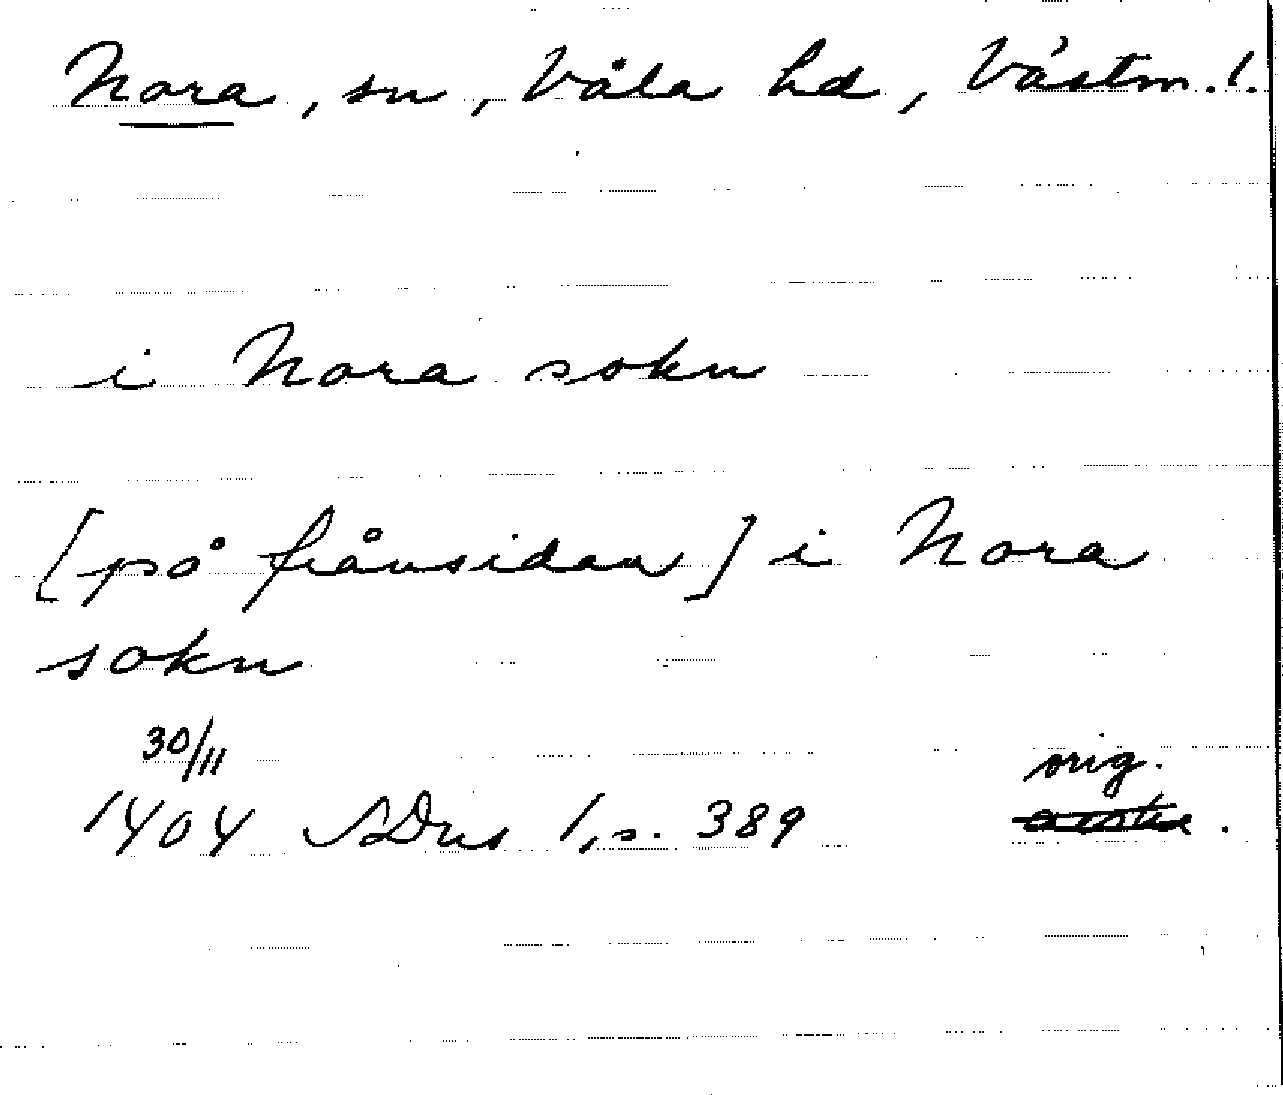 Nora, sn, Våla hd, Västm. l.
i Nora sokn
[på frånsidan] i Nora
sokn
30/11 orig.
1404 SDns 1, s. 389